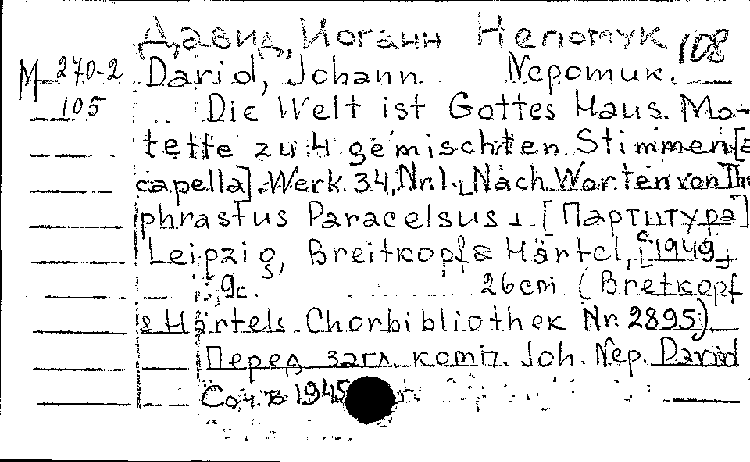 Давид, Иоганн Непомук 108
М 270-2 David, Johann Nepomuk.
105 Die Welt ist Gottes Haus. Mo-
tette zu 4 gemischten Stimmen [a
capella]. Werk 34, Nr1. Nach Worten von Theo
phrastus Paracelsus. [Партитура]
Leipzig, Breitkopf & Härtel, [c 1949]
9c. 26cm (Breitkopf
& Härtels Chorbibliothek Nr. 2895)
Перед загл. комп. Joh. Nep. David
Соч. в 1945